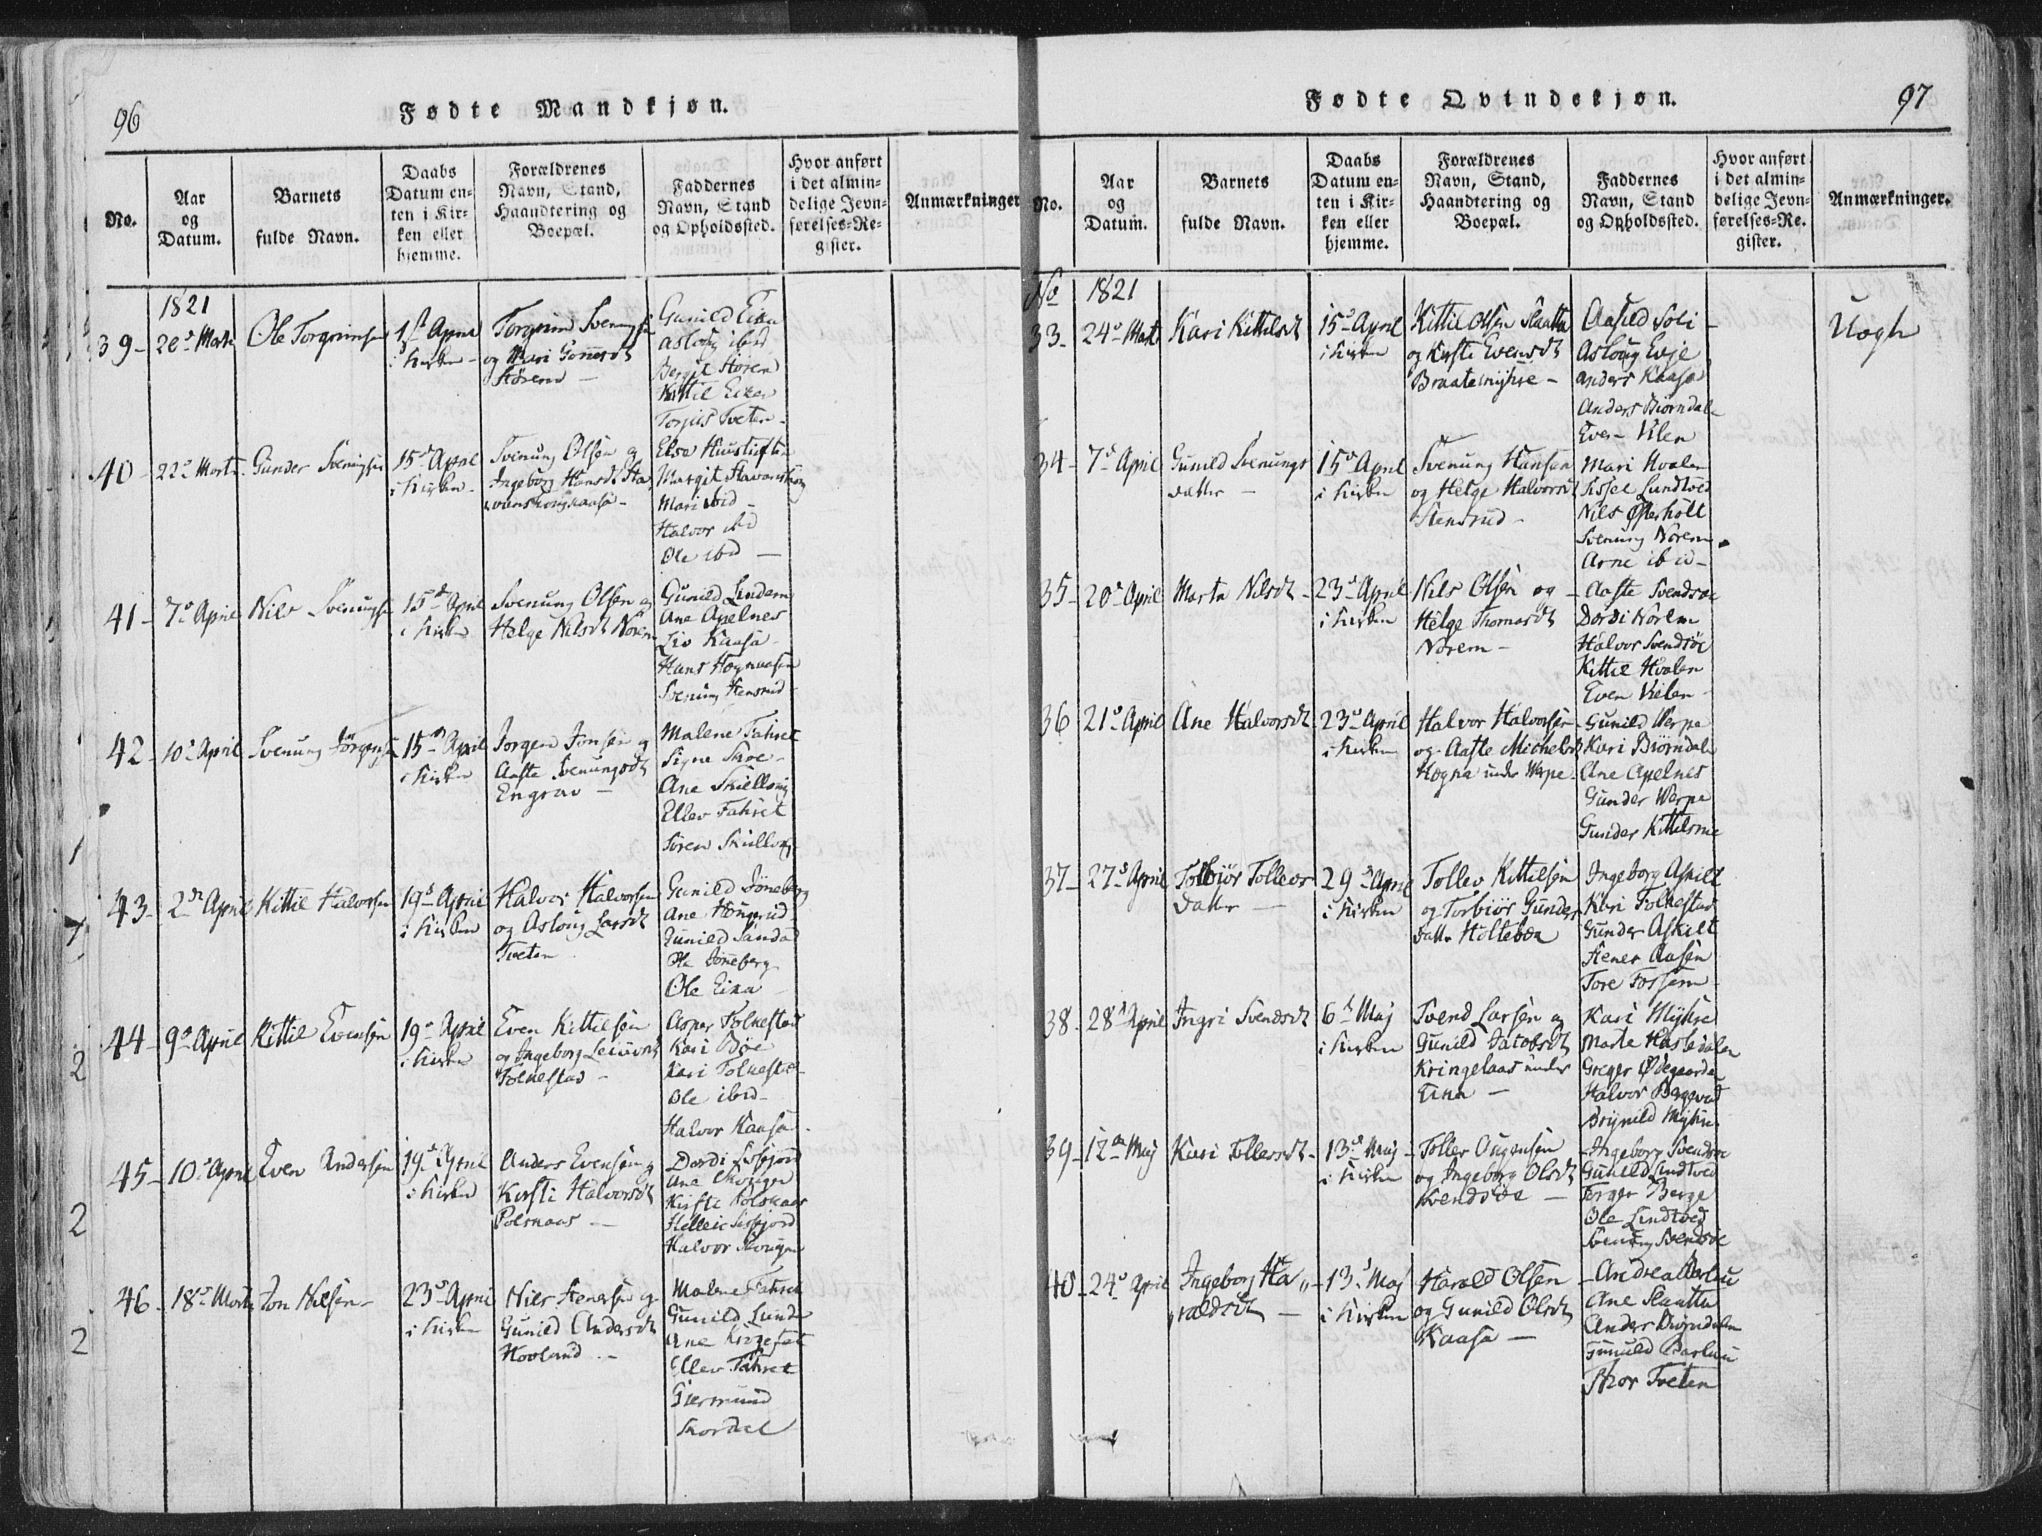 96
Fødte Mandkjøn.
No.
Aar
og
Datum.
Barnets
fulde Navn.
Daabs
Datum en-
ten i Kir-
ken eller
hjemme.
Forældrenes
Navn, Stand,
Haandtering og
Boepæl.
Faddernes
Navn, Stand
og Opholdssted.
Hvor anført
i det almin-
delige Jevn-
førelses-Re-
gister.
Anmærkninger
1821
39-
20de Marts
Ole Torgrimsen
1ste April
i Kirken
Torgrim Svenungsen
og Mari
Støren
Gunild Eika
Aslong ibid
Bergit Støren
Kittil Eika
Torjus Tveten
40-
22de Marts
Gunder Svenungsen
15de April
i Kirken
Svenung Olsen og
Ingeborg Hansdt
Else
Margit
Mari ibid
Halvor ibd
Ole ibid
41-
7de April
Nils Svenungsen
15de April
i Kirken
Svenung Olsen og
Helge Nilsdt Norem
Gunild Lindem
Ane Apelnes
Liv Kaasa
Hans
Svenung Stensrud
42-
10de April
Svenung Jörgensen
15de April
i Kirken
Jorgen Jonsen og
Aaste Svenungsdt
Engrav
Malene Fahret
Signe Skoe
Ane
Ellev Fahret
Søren
43-
2den April
Kittil Halvorsen
19de April
i Kirken
Halvor Halvorsen
og Aslong Larsdt
Tveten
Gunild Jöneberg
Ane
Gunild Sanda
Ole Jöneberg
Ole Eika
44-
9de April
Kittil Evensen
19de April
i Kirken
Even Kittilsen
og Ingeborg
Folkestad
Asper Folkestad
Kari Bøe
Kari Folkestad
Ole ibid
Halvor Kaasa
45-
10de April
Even Andersen
19de April
i Kirken
Anders Evensen og
Kirsti Halvorsdt
Polsnaas
Dordi
Ane Skougen
Kirsti Polsnaas
Helleic
Halvor Skougen
46-
18de Marts
Jon Nilsen
23de April
i Kirken
Nils Stenersen og
Gunild Andersdt
Hovland
Malene Fahret
Gunild Lunde
Ane
Ellev Fahret
Giermund
Skordal
97
Fødte Qvindekjøn.
No.
Aar
og
Datum.
Barnets
fulde Navn.
Daabs
Datum en-
ten i Kir-
ken eller
hjemme.
Forældrenes
Navn, Stand,
Haandtering og
Boepæl.
Faddernes
Navn, Stand
og Opholdssted.
Hvor anført
i det almin-
delige Jevn-
førelses-Re-
gister.
Anmærkninger.
No 1821
33-
24de Marts
Kari Kittilsdt
15de April
i Kirken
Kittil Olsen Slaatta
og Kirsti Evensdt
Braatemyhre
Aasild Soli
Aslong Evje
Anders Kaasa
Anders Biørndalen
Even Vilen
Uægh
34-
7de April
Gunild Svenungs
datter
15de April
i Kirken
Svenung Hansen
og Helge Halvorsdt
Stensrud
Mari Hvalen
Sissel Lundtved
Nils Østerholt
Svenung Norem
Arne ibid
35-
20de April
Marta Nilsdt
23de April
i Kirken
Nils Olsen og
Helge Thomasdt
Norem
Aaste Svendsøe
Dordi Norem
Halvor Svendsøe
Kittil Hvalen
Even Vilen
36
21de April
Ane Halvorsdt
23de April
i Kirken
Halvor Halvorsen
og Aaste Michelsdt
Hogna under Werpe
Gunild Werpe
Kari Biørndalen
Ane Apelnes
Gunder Werpe
Gunder
37-
27de April
Torbiør Tollevs
datter
29de April
i Kirken
Tollev Kittilsen
og Torbiør Gunders
datter Holtebøa
Ingeborg Askilt
Kari Folkestad
Gunder Askilt
Stener Aasen
Tore
38-
28de April
Ingri Svendsdt
6te Maj
i Kirken
Svend Larsen og
Gunild Jacobsdt
Kringelaas under
Eika
Kari Myhre
Marte
Greger Ødegaarden
Halvor
Brynild Myhre
39-
12te Maj
Kari Tollevsdt
13de Maj
i Kirken
Tollev
og Ingeborg Olsdt
Svendsøe
Ingeborg Svendsøe
Gunild Lindtved
Torger Berge
Ole Lindtved
Svenung Svendsøe
40-
24de April
Ingeborg Ha
raldsdt
13de Maj
i Kirken
Harald Olsen
og Gunild Olsdt
Kaasa
Andrea
Ane Slaatta
Anders Biørndalen
Gunild
Thor Tveten
1
2
2
2